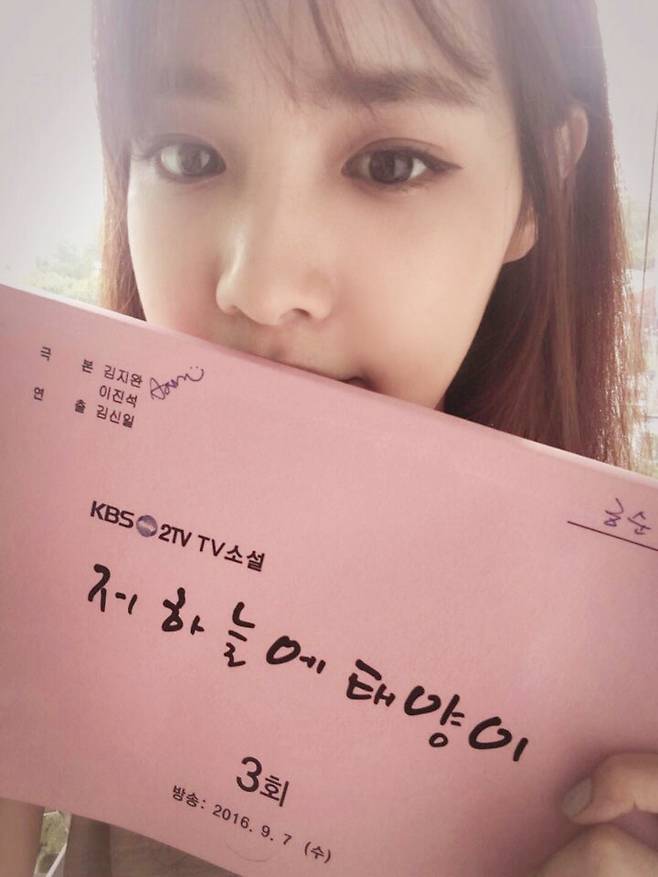 극 본 김지완
이진석
연 출 김신일
KBS 2TV TV소설
저 하늘에 태양이
3회
방송: 2016. 9. 7 (수)